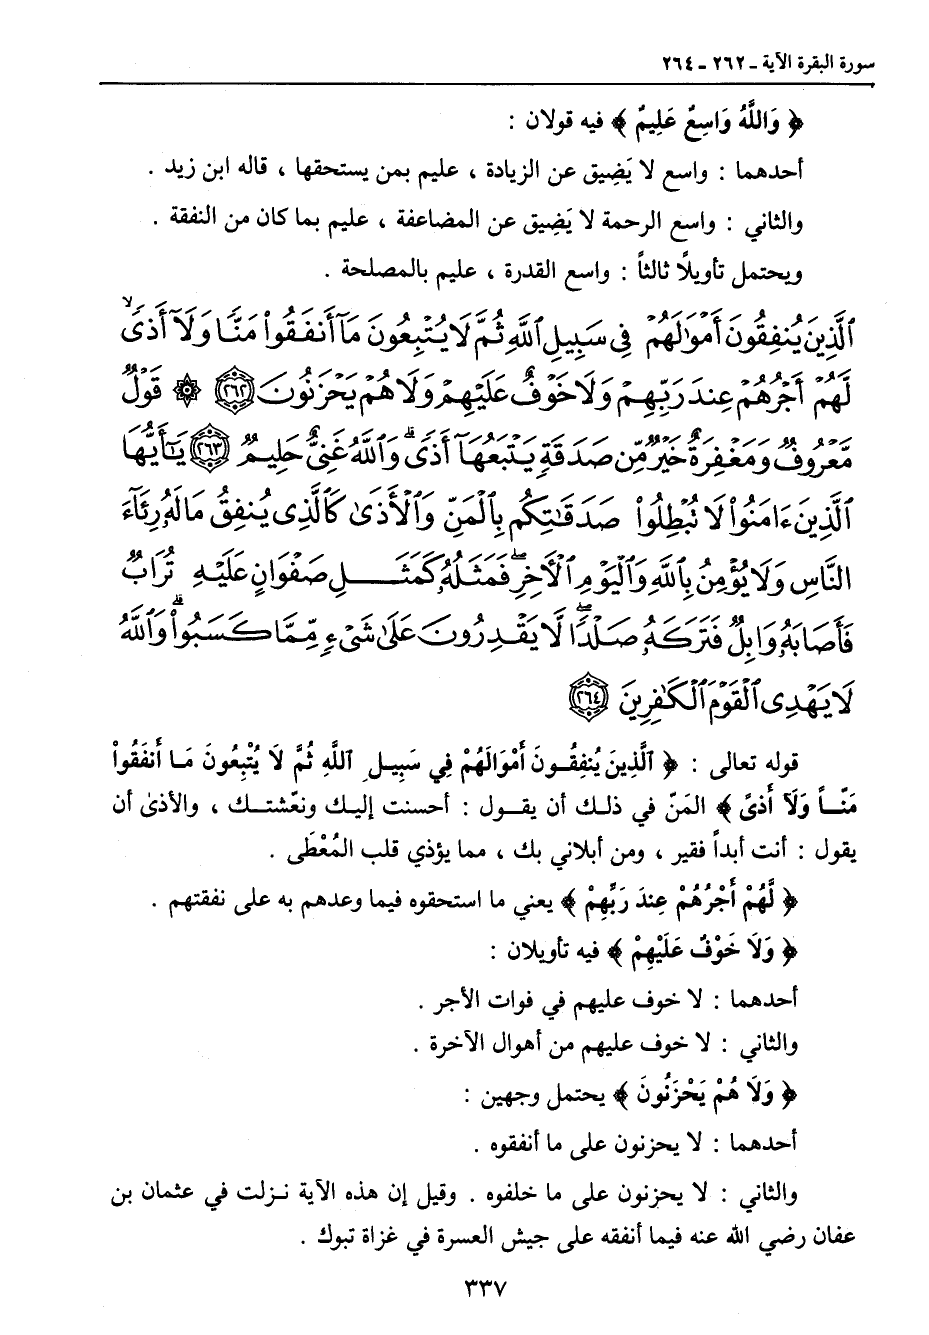 سورة البقرة الآية ـ ٢٦٢ ـ ٢٦٤
﴿ وَاللَّهُ وَاسِعٌ عَلِيمٌ ﴾ فيه قولان :
أحدهما : واسع لا يَضِيق عن الزيادة ، عليم بمن يستحقها ، قاله ابن زيد .
والثاني : واسع الرحمة لا يَضِيق عن المضاعفة ، عليم بما كان من النفقة .
ويحتمل تأويلاً ثالثاً : واسع القدرة ، عليم بالمصلحة .
ٱلَّذِينَ يُنفِقُونَ أَمْوَٰلَهُمْ فِى سَبِيلِ ٱللَّهِ ثُمَّ لَا يُتْبِعُونَ مَآ أَنفَقُوا۟ مَنًّا وَلَآ أَذًىۙ
لَّهُمْ أَجْرُهُمْ عِندَ رَبِّهِمْ وَلَا خَوْفٌ عَلَيْهِمْ وَلَا هُمْ يَحْزَنُونَ ٢٦٢ ۞ قَوْلٌ
مَّعْرُوفٌ وَمَغْفِرَةٌ خَيْرٌ مِّن صَدَقَةٍ يَتْبَعُهَآ أَذًىۗ وَٱللَّهُ غَنِىٌّ حَلِيمٌ ٢٦٣ يَـٰٓأَيُّهَا
ٱلَّذِينَ ءَامَنُوا۟ لَا تُبْطِلُوا۟ صَدَقَـٰتِكُم بِٱلْمَنِّ وَٱلْأَذَىٰ كَٱلَّذِى يُنفِقُ مَالَهُۥ رِئَآءَ
ٱلنَّاسِ وَلَا يُؤْمِنُ بِٱللَّهِ وَٱلْيَوْمِ ٱلْـَٔاخِرِۖ فَمَثَلُهُۥ كَمَثَلِ صَفْوَانٍ عَلَيْهِ تُرَابٌ
فَأَصَابَهُۥ وَابِلٌ فَتَرَكَهُۥ صَلْدًاۖ لَّا يَقْدِرُونَ عَلَىٰ شَىْءٍ مِّمَّا كَسَبُوا۟ۗ وَٱللَّهُ
لَا يَهْدِى ٱلْقَوْمَ ٱلْكَـٰفِرِينَ ٢٦٤
قوله تعالى : ﴿ ٱلَّذِينَ يُنفِقُونَ أَمْوَالَهُمْ فِي سَبِيلِ ٱللَّهِ ثُمَّ لَا يُتْبِعُونَ مَا أَنفَقُواْ
مَنّاً وَلَآ أَذىً ﴾ المَنّ في ذلك أن يقول : أحسنت إليك ونعّشتك ، والأذىٰ أن
يقول : أنت أبداً فقير ، ومن أبلاني بك ، مما يؤذي قلب المُعْطَى .
﴿ لَّهُمْ أَجْرُهُمْ عِندَ رَبِّهِمْ ﴾ يعني ما استحقوه فيما وعدهم به على نفقتهم .
﴿ وَلَا خَوْفٌ عَلَيْهِمْ ﴾ فيه تأويلان :
أحدهما : لا خوف عليهم في فوات الأجر .
والثاني : لا خوف عليهم من أهوال الآخرة .
﴿ وَلَا هُمْ يَحْزَنُونَ ﴾ يحتمل وجهين :
أحدهما : لا يحزنون على ما أنفقوه .
والثاني : لا يحزنون على ما خلفوه . وقيل إن هذه الآية نزلت في عثمان بن
عفان رضي الله عنه فيما أنفقه على جيش العسرة في غزاة تبوك .
٣٣٧